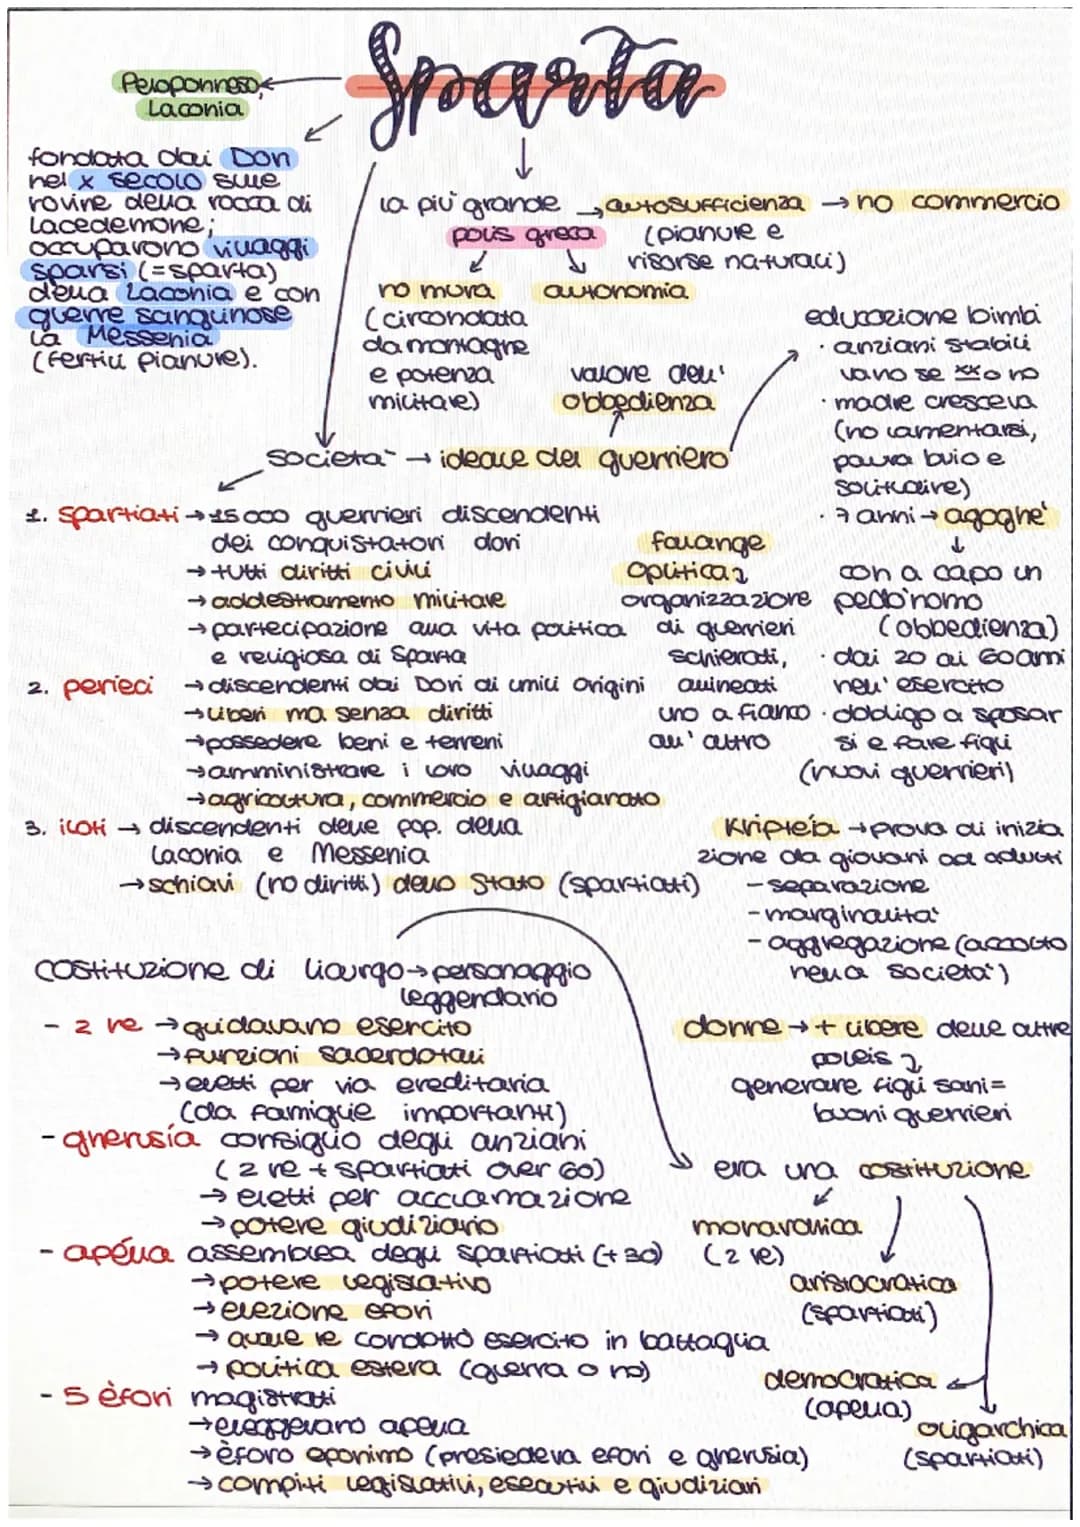 Sparta
Peloponneso,
Laconia
fondata dai Dori
nel X secolo sulle
rovine della rocca di
Lacedemone;
occuparono villaggi
sparsi (=sparta)
della Laconia e con
guerre sanguinose
la Messenia
(fertili pianure).
la più grande
polis greca
autosufficienza → no commercio
(pianure e
risorse naturali)
no mura
(circondata
da montagne
e potenza
militare)
autonomia
valore dell'
obbedienza
società → ideale del guerriero
educazione bimbi
· anziani stabili
vano se xx o no
· madre cresceva
(no lamentarsi,
paura buio e
solitudine)
· 7 anni → agoghé
↓
con a capo un
pedònomo
(obbedienza)
· dai 20 ai 60 anni
nell'esercito
· obbligo a sposar
si e fare figli
(nuovi guerrieri)
1. spartiati → 15000 guerrieri discendenti
dei conquistatori dori
→ tutti diritti civili
→ addestramento militare
→ partecipazione alla vita politica
e religiosa di Sparta
falange
oplitica
organizzazione
di guerrieri
schierati,
allineati
uno a fianco
all'altro
2. perieci → discendenti dai Dori di umili origini
→ liberi ma senza diritti
→ possedere beni e terreni
→ amministrare i loro villaggi
→ agricoltura, commercio e artigianato
3. iloti → discendenti delle pop. della
Laconia e Messenia
→ schiavi (no diritti) dello Stato (spartiati)
Kripteia → prova di inizia
zione da giovani ad adulti
- separazione
- marginalità
- aggregazione (accolto
nella società)
costituzione di Licurgo → personaggio
leggendario
- 2 re → guidavano esercito
→ funzioni sacerdotali
→ eletti per via ereditaria
(da famiglie importanti)
- gherusía consiglio degli anziani
(2 re + spartiati over 60)
→ eletti per acclamazione
→ potere giudiziario
- apélla assemblea degli spartiati (+30)
→ potere legislativo
→ elezione efori
→ quale re condottò esercito in battaglia
→ politica estera (guerra o no)
- 5 èfori magistrati
→ eleggevano apella
→ èforo eponimo (presiedeva efori e gherusia)
→ compiti legislativi, esecutivi e giudiziari
donne → + libere delle altre
poleis
generare figli sani =
buoni guerrieri
era una costituzione
monarchica
(2 re)
aristocratica
(spartiati)
democratica
(apella)
oligarchica
(spartiati)